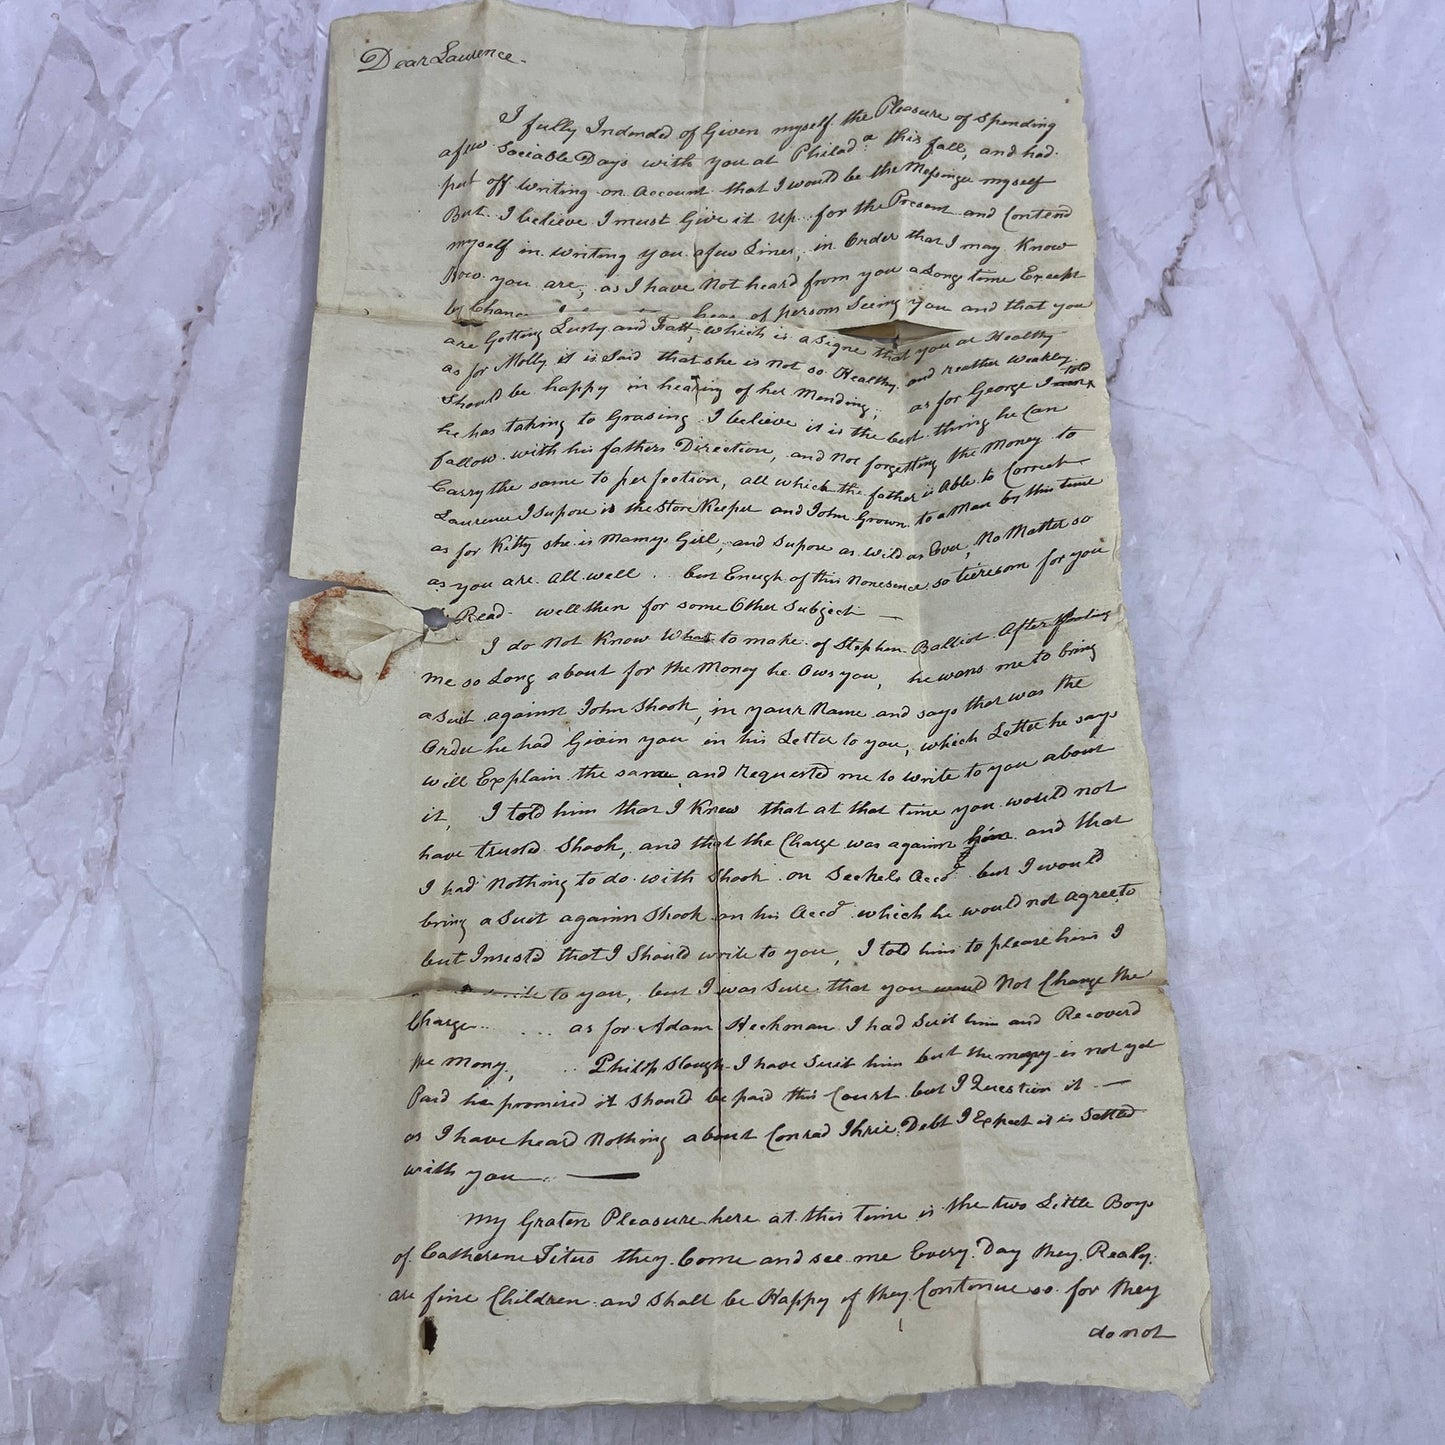 Dear Lawrence.
I fully Indended of Given myself the Pleasure of Spending
a few Sociable Days with you at Philad.a this fall, and had
put off writing on Account that I would be the Messinger myself
But I believe I must Give it Up for the Present and Contend
myself in writing you a few Lines, in Order that I may Know
How you are, as I have Not heard from you a Long time Except
by Chance hear of persons Seeing you and that you
are Getting Lusty and Fatt, which is a Signe that you ar Healthy
as for Molly it is Said that she is Not so Healthy and reather Weakley
Should be happy in hearing of her Mending, as for George I told
he has taking to Grasing I believe it is the best thing he Can
fallow with his fathers Direction, and Not forgetting the Money to
Carry the same to perfection, all which the father is Able to Correct
Laurence I Supose is the Store Keeper and John Grown to a Man by this time
as for Kitty she is Mamys Girl, and Supose as wild as Ever, No Matter so
as you are all well but Enugh of this Nonesence so tieresom for you
Read well then for some Other Subject —
I do Not Know What to make of Stephen Balliot After
me so Long about for the Money he Ows you, he wans me to bring
a Suit against John Shook, in your Name and says that was the
Order he had Givin you in his Letter to you, which Letter he says
will Explain the same, and Requested me to write to you about
it, I told him that I Knew that at that time you would not
have trusted Shook, and that the Charge was against him and that
I had Nothing to do with Shook on Seekels Accd but I would
bring a Suit against Shook on his Accd which he would not agree to
but Insestd that I Should write to you, I told him to please him I
write to you, but I was Sure that you would Not Change the
Charge .... as for Adam Heckman I had Suit him and Recoverd
the Mony, .. Philip Slough I have Suit him but the mony is not yet
Paid he promised it Should be paid this Court but I Question it —
as I have heard Nothing about Conrad Ihrie Debt I Expect it is Setted
with you —
My Graten Pleasure here at this time is the two Little Boys
of Catherene Titus they Come and see me Every Day they Realy
are fine Children and Shall be Happy if they Contonue so for they
do not